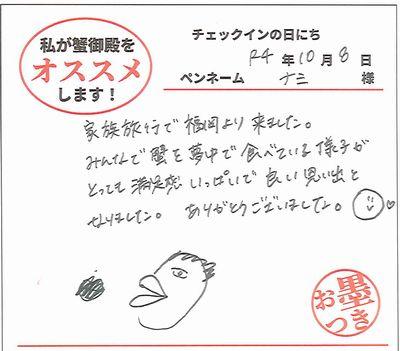 私が蟹御殿を
オススメ
します！
チェックインの日にち
R4年10月8日
ペンネーム ナミ 様
家族旅行で福岡より来ました。
みんなで蟹を夢中で食べている様子が
とっても満足感いっぱいで良い思い出と
なりました。ありがとうございました。
お墨つき